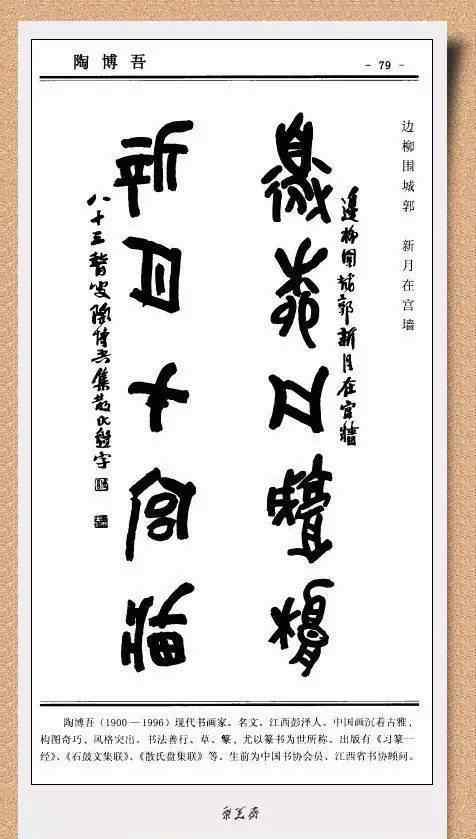 陶博吾
- 79 -
边柳围城郭 新月在宫墙
邊柳圍城郭新月在宫牆
邊柳圍城郭
新月在宫牆
八十三聱叟陶博吾集散氏盤字
陶博吾（1900—1996）现代书画家、名文、江西彭泽人、中国画沉着古雅，
构图奇巧、风格突出、书法善行、草、篆，尤以篆书为世所称、出版有《习篆一
经》、《石鼓文集联》、《散氏盘集联》等、生前为中国书协会员、江西省书协顾问。